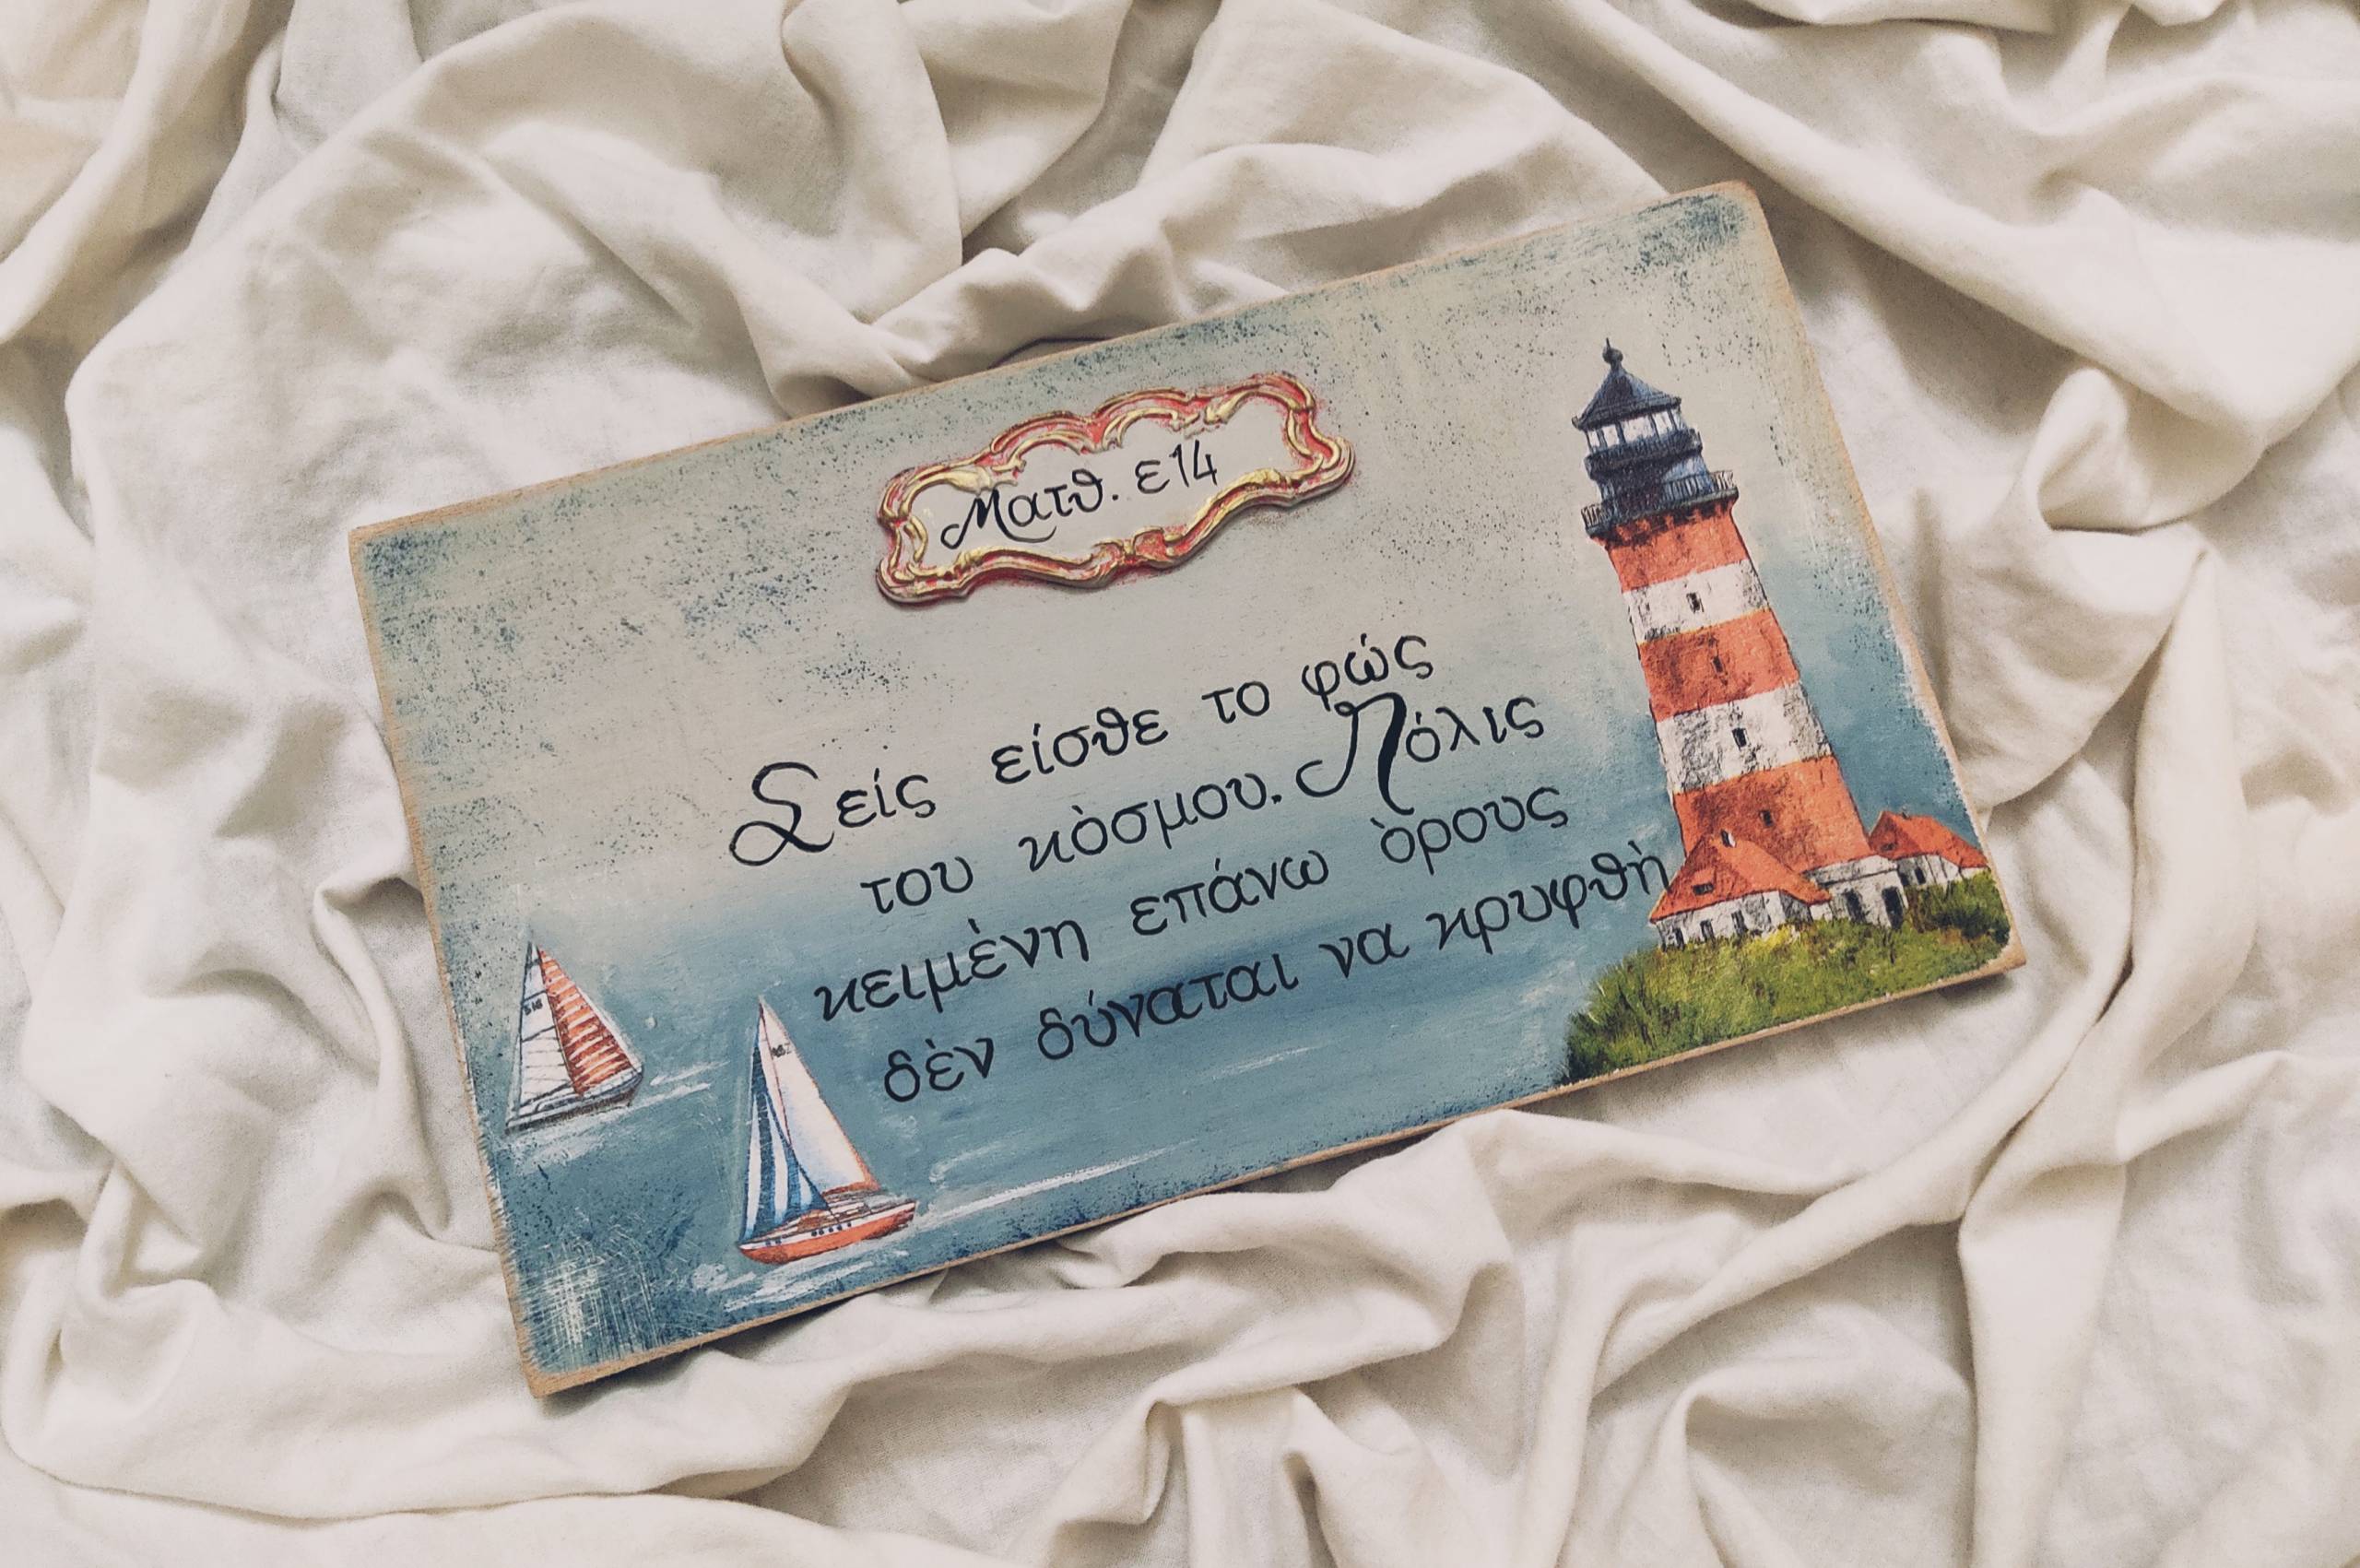 Ματθ. ε14
Σείς είσθε το φώς
του κὸσμου. Πόλις
κειμὲνη επάνω ὸρους
δὲν δύναται να κρυφθὴ